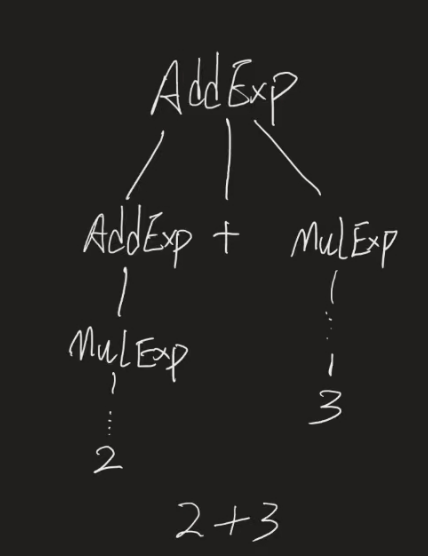 AddExp
AddExp + MulExp
MulExp
3
2
2+3